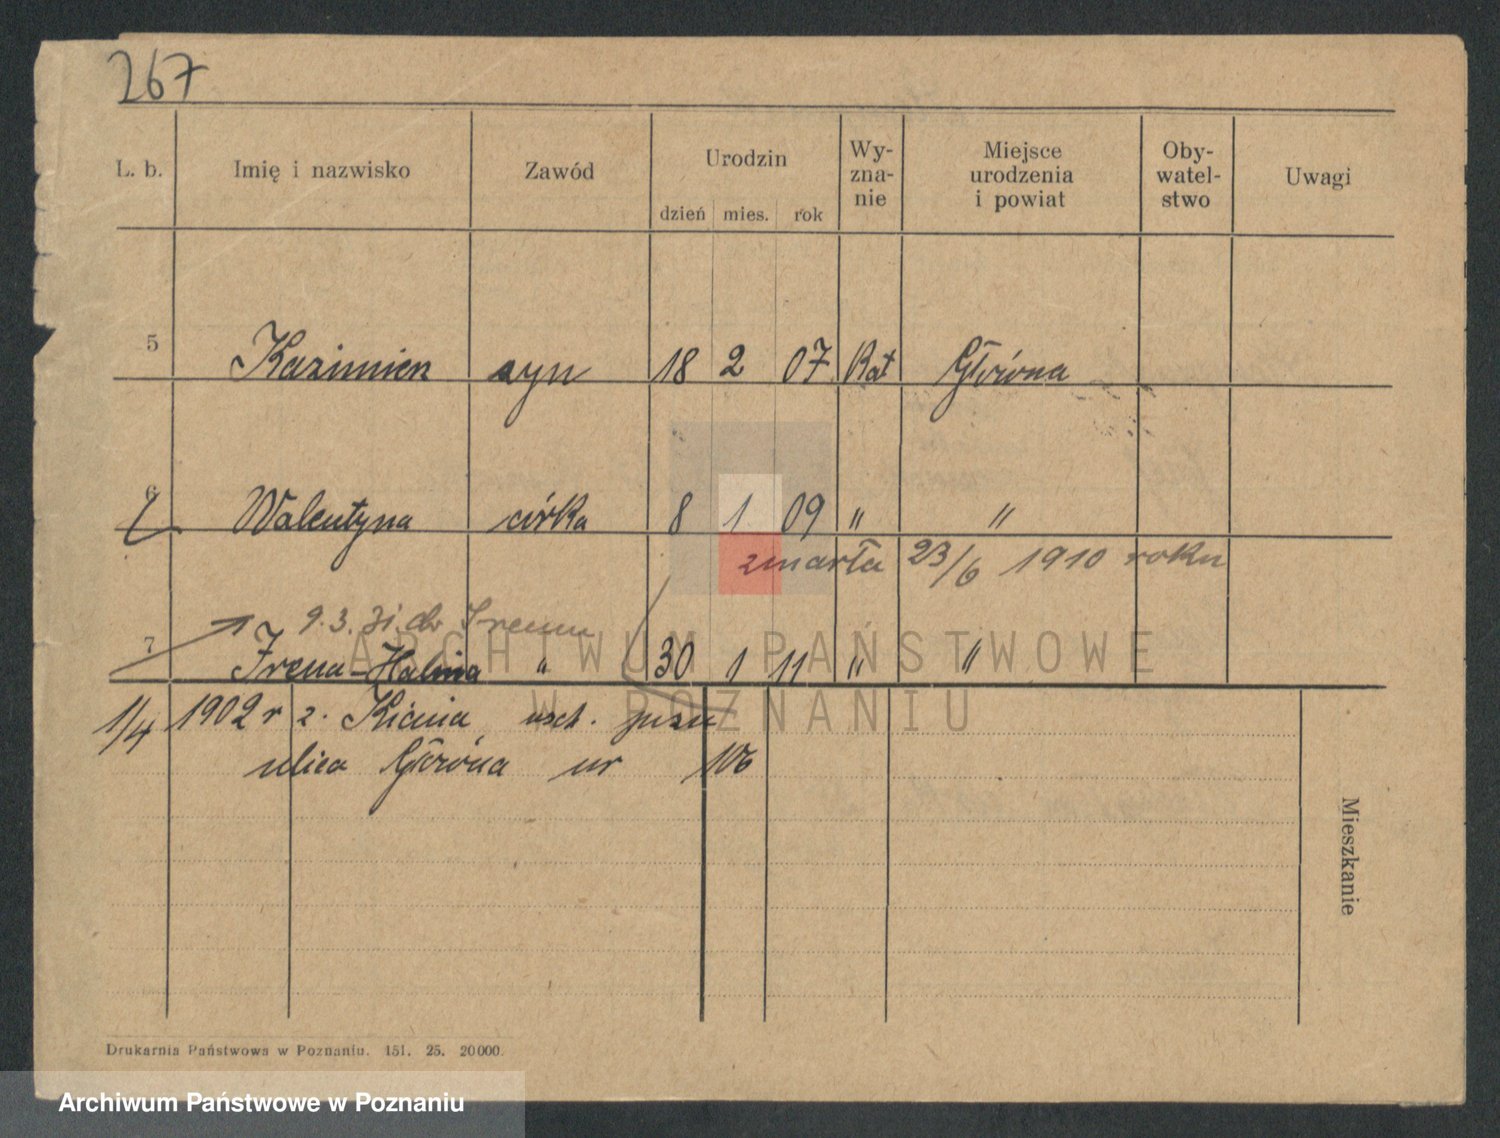 267
L. b. Imię i nazwisko Zawód Urodzin dzień mies. rok Wy-zna-nie Miejsce urodzenia i powiat Oby-watel-stwo Uwagi
5 Kazimierz syn 18 2 07 Kat Główna
6 Walentyna córka 8 1 09 " "
zmarła 23/6 1910 roku
9.3.31.
7 Irena-Halina " 30 1 11 " "
ARCHIWUM PAŃSTWOWE
W POZNANIU
1/4 1902 r z. Kicina
ulica Główna nr 106
Mieszkanie
Drukarnia Państwowa w Poznaniu. 151. 25. 20000.
Archiwum Państwowe w Poznaniu